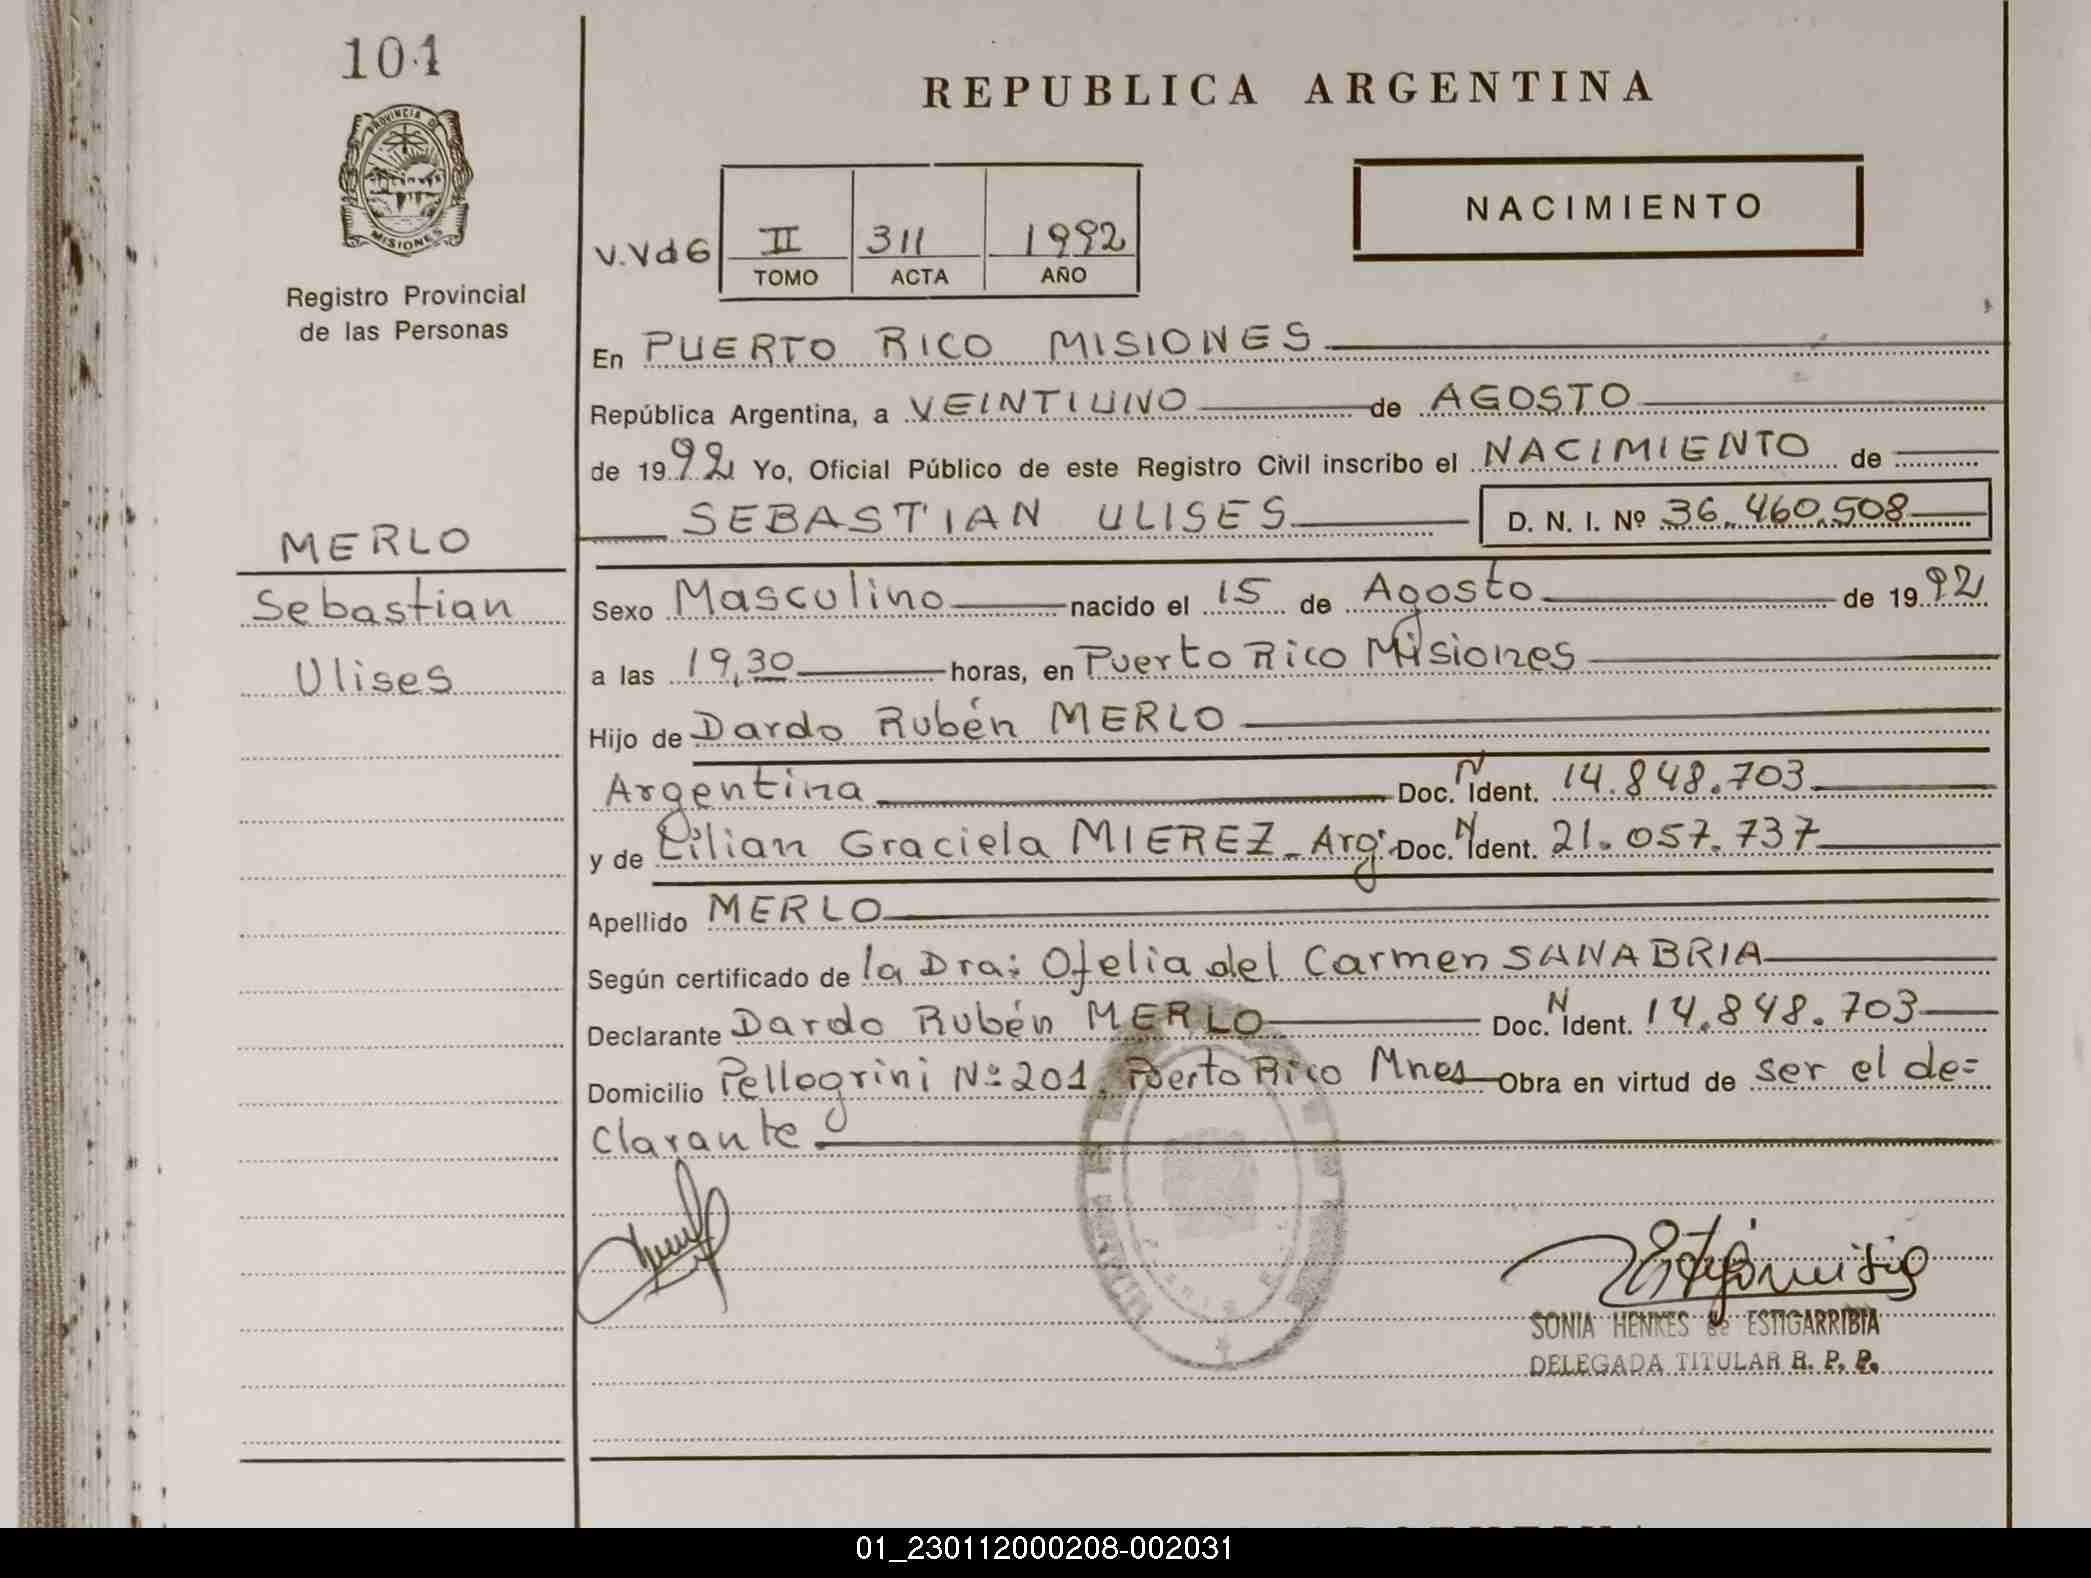 101
PROVINCIA DE
MISIONES
Registro Provincial
de las Personas
MERLO
Sebastian
Ulises
REPUBLICA ARGENTINA
NACIMIENTO
V.VdG II 311 1992
TOMO ACTA AÑO
En PUERTO RICO MISIONES
República Argentina, a VEINTIUNO de AGOSTO
de 1992 Yo, Oficial Público de este Registro Civil inscribo el NACIMIENTO de
SEBASTIAN ULISES D. N. I. Nº 36.460.508
Sexo Masculino nacido el 15 de Agosto de 1992
a las 19,30 horas, en Puerto Rico Misiones
Hijo de Dardo Rubén MERLO
Argentina Doc. N Ident. 14.848.703
y de Lilian Graciela MIEREZ_Arg. Doc. N Ident. 21.057.737
Apellido MERLO
Según certificado de la Dra: Ofelia del Carmen SANABRIA
Declarante Dardo Rubén MERLO Doc. N Ident. 14.848.703
Domicilio Pellogrini Nº 201. Puerto Rico Mnes Obra en virtud de ser el de=
clarante
SONIA HENKES de ESTIGARRIBIA
DELEGADA TITULAR R. P. P.
01_230112000208-002031